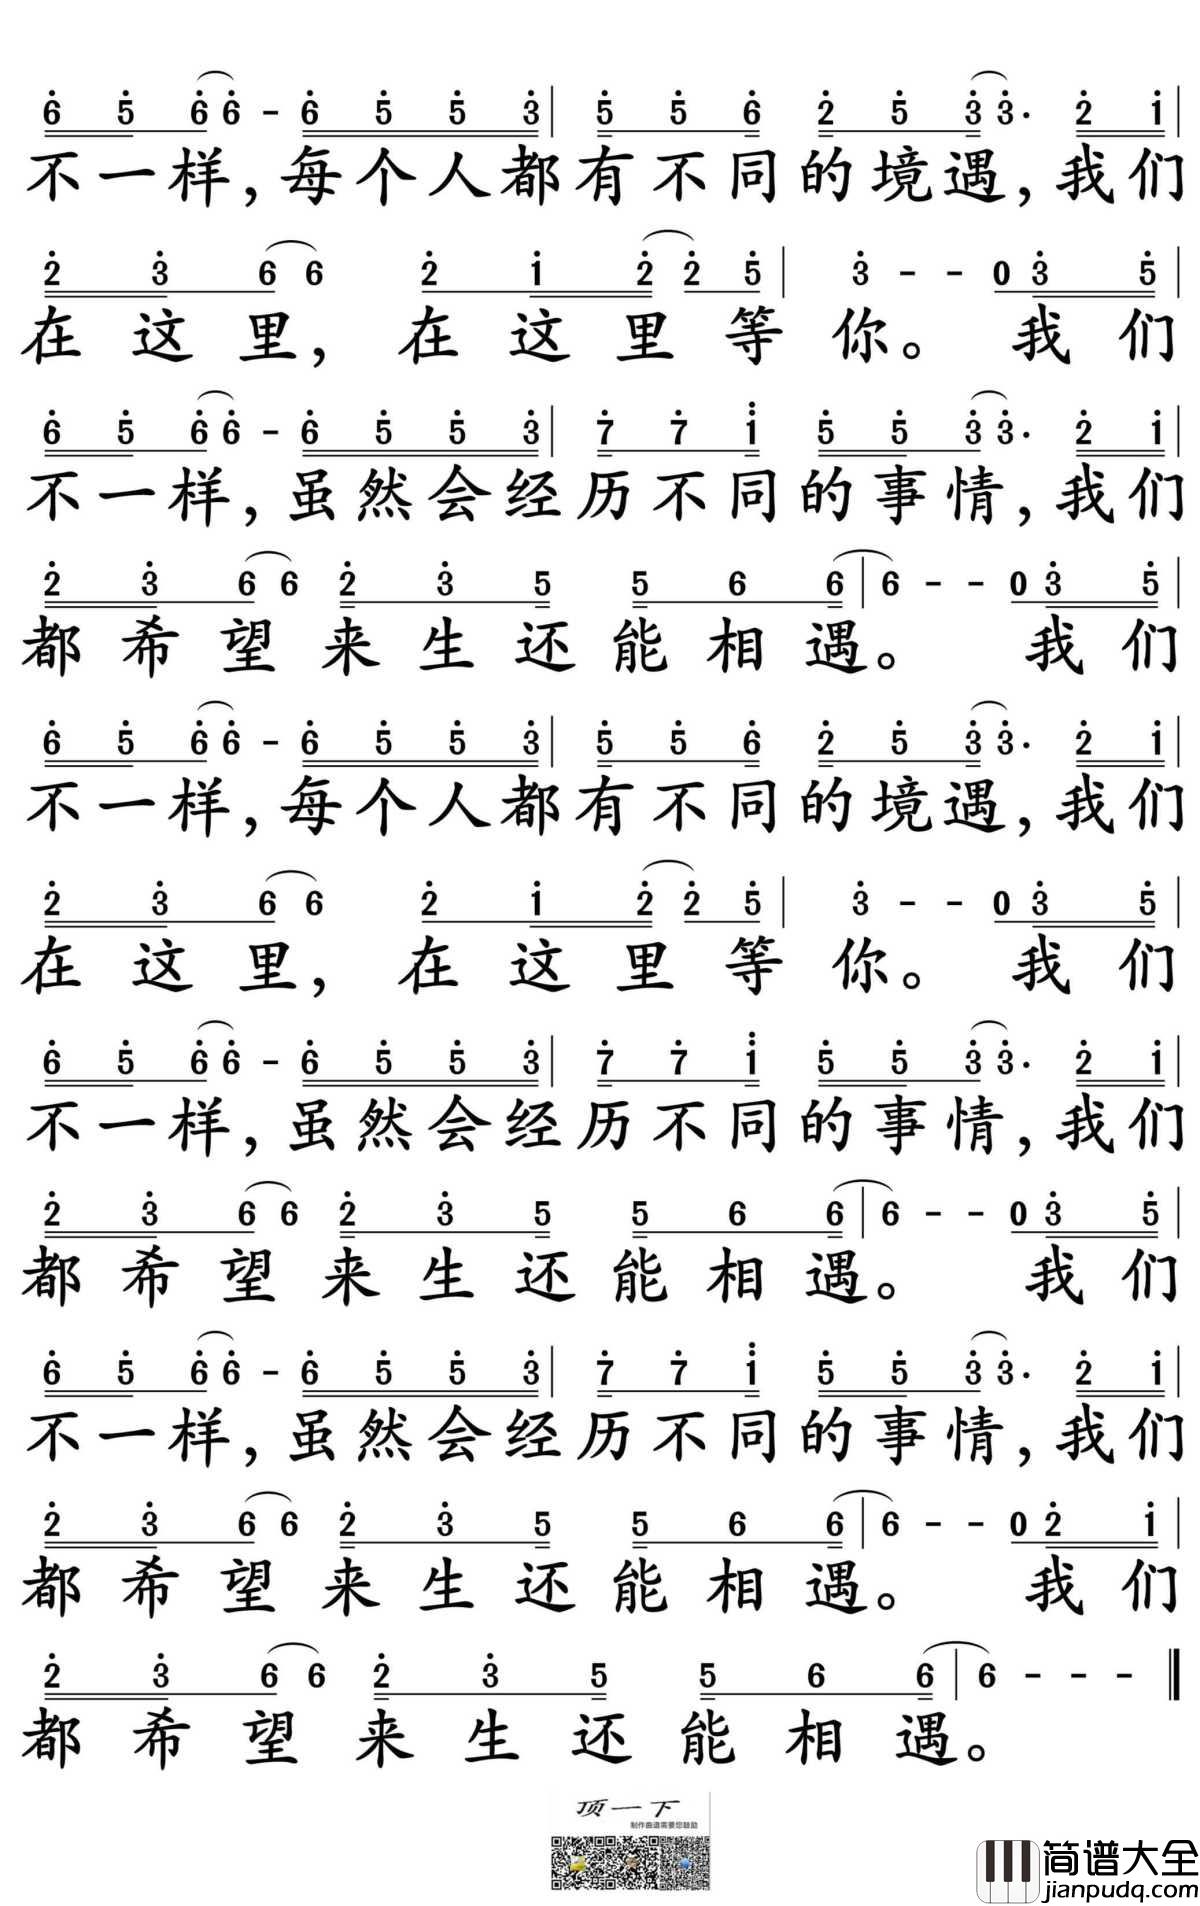 6 5 6 6 - 6 5 5 3 | 5 5 6 2 5 3 3· 2 1 |
不一样，每个人都有不同的境遇，我们
2 3 6 6 2 1 2 2 5 | 3 - - 0 3 5 |
在这里，在这里等你。我们
6 5 6 6 - 6 5 5 3 | 7 7 1 5 5 3 3· 2 1 |
不一样，虽然会经历不同的事情，我们
2 3 6 6 2 3 5 5 6 6 | 6 - - 0 3 5 |
都希望来生还能相遇。我们
6 5 6 6 - 6 5 5 3 | 5 5 6 2 5 3 3· 2 1 |
不一样，每个人都有不同的境遇，我们
2 3 6 6 2 1 2 2 5 | 3 - - 0 3 5 |
在这里，在这里等你。我们
6 5 6 6 - 6 5 5 3 | 7 7 1 5 5 3 3· 2 1 |
不一样，虽然会经历不同的事情，我们
2 3 6 6 2 3 5 5 6 6 | 6 - - 0 3 5 |
都希望来生还能相遇。我们
6 5 6 6 - 6 5 5 3 | 7 7 1 5 5 3 3· 2 1 |
不一样，虽然会经历不同的事情，我们
2 3 6 6 2 3 5 5 6 6 | 6 - - 0 2 1 |
都希望来生还能相遇。我们
2 3 6 6 2 3 5 5 6 6 | 6 - - - ‖
都希望来生还能相遇。
顶一下
制作曲谱需要您鼓励
简谱大全
jianpudq.com